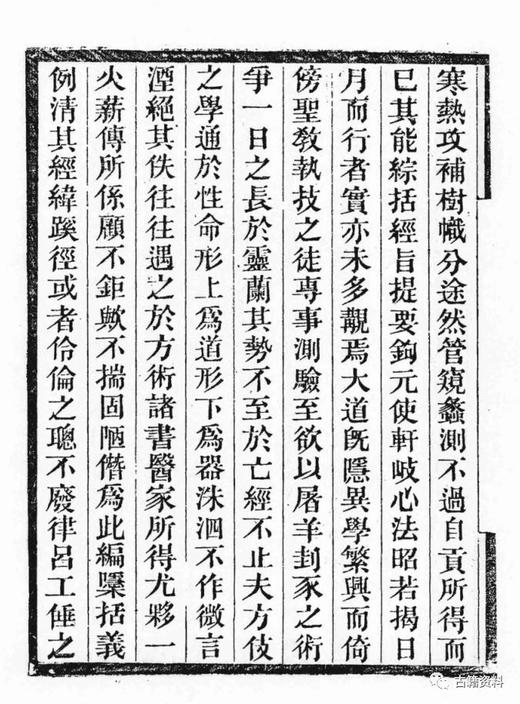 寒熱攻補樹幟分途然管窺蠡測不過自貢所得而
已其能綜括經旨提要鉤元使軒岐心法昭若揭日
月而行者實亦未多覯焉大道旣隱異學繁興而倚
傍聖敎執技之徒專事測驗至欲以屠羊封豕之術
爭一日之長於靈蘭其勢不至於亡經不止夫方伎
之學通於性命形上爲道形下爲器洙泗不作微言
湮絕其佚往往遇之於方術諸書醫家所得尤夥一
火薪傳所係顧不鉅歟不揣固陋僭爲此編櫽括義
例清其經緯蹊徑或者伶倫之聰不廢律呂工倕之
古籍资料